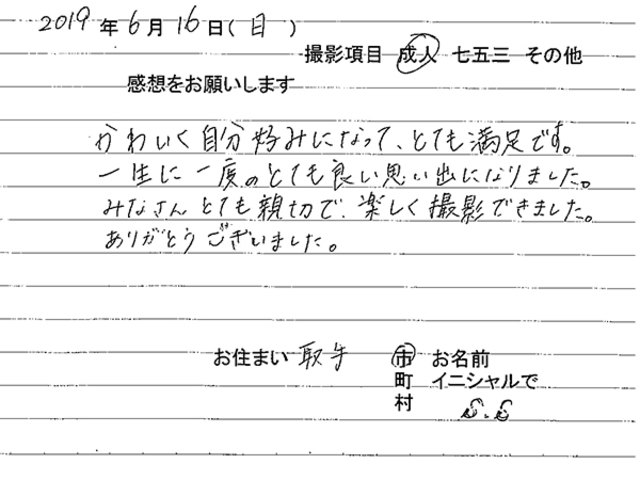 2019年6月16日(日)
撮影項目 成人 七五三 その他
感想をお願いします
かわいく自分好みになって、とても満足です。
一生に一度のとても良い思い出になりました。
みなさんとても親切で、楽しく撮影できました。
ありがとうございました。
お住まい 取手 市 お名前
町 イニシャルで
村